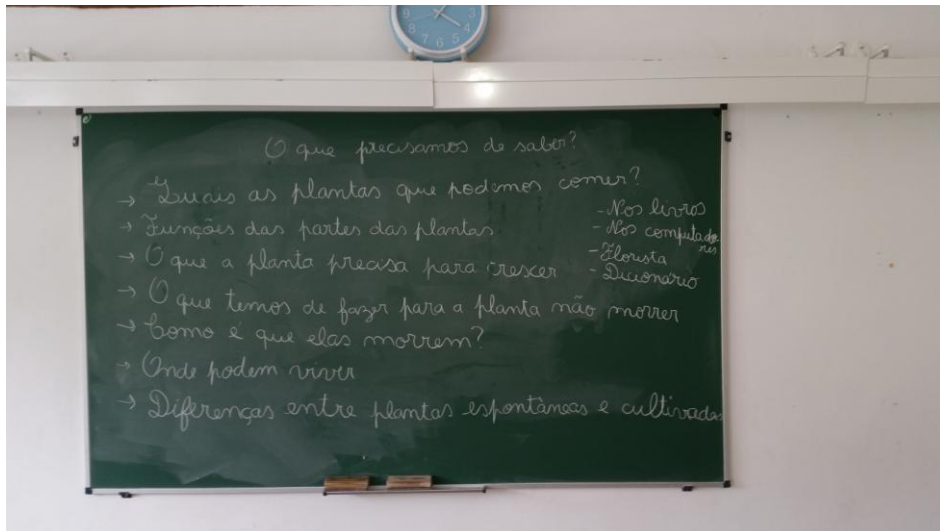 O que precisamos de saber?
→ Quais as plantas que podemos comer?
→ Funções das partes das plantas
→ O que a planta precisa para crescer
→ O que temos de fazer para a planta não morrer
→ Como é que elas morrem?
→ Onde podem viver
→ Diferenças entre plantas espontâneas e cultivadas
- Nos livros
- Nos computado
res
- Florista
- Dicionário